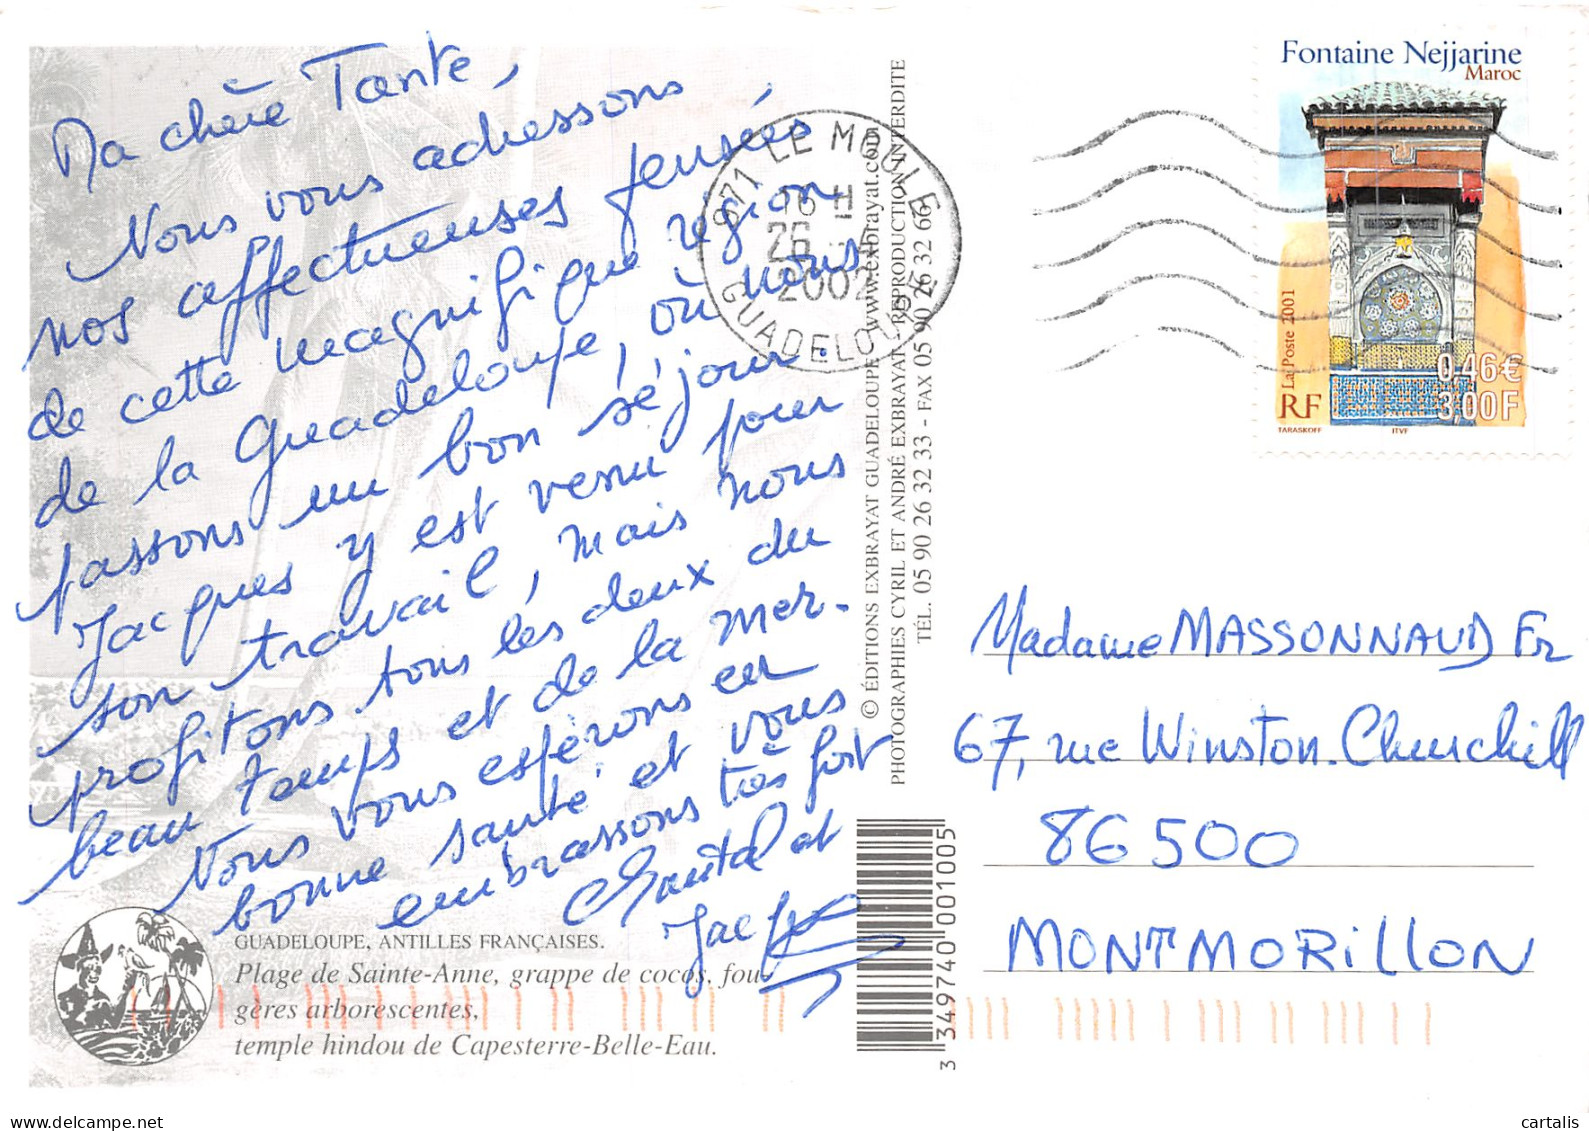 Ma chère Tante,
Nous vous adressons
nos affectueuses pensées
de cette magnifique région
de la Guadeloupe, où nous
passons un bon séjour.
Jacques y est venu pour
son travail, mais nous
profitons tous les deux du
beau temps et de la mer.
Nous vous espérons en
bonne santé et vous
embrassons très fort
Chantal et
Jacques
GUADELOUPE, ANTILLES FRANÇAISES.
Plage de Sainte-Anne, grappe de cocos, fou-
gères arborescentes,
temple hindou de Capesterre-Belle-Eau.
© ÉDITIONS EXBRAYAT GUADELOUPE www.exbrayat.com
PHOTOGRAPHIES CYRIL ET ANDRÉ EXBRAYAT - REPRODUCTION INTERDITE
TÉL. 05 90 26 32 33 - FAX 05 90 26 32 66
3 349740 001005
971 LE MOULE
16 H
26
2002
GUADELOUPE
Fontaine Nejjarine
Maroc
La Poste 2001
0,46€
3,00F
RF
TARASKOFF
ITVF
Madame MASSONNAUD Fr
67, rue Winston-Churchill
86500
MONTMORILLON
cartalis